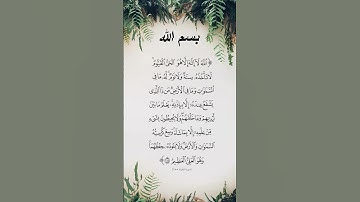 بسم الله
﴿ اللَّهُ لَا إِلَٰهَ إِلَّا هُوَ الْحَيُّ الْقَيُّومُ
لَا تَأْخُذُهُ سِنَةٌ وَلَا نَوْمٌ لَّهُ مَا فِي
السَّمَاوَاتِ وَمَا فِي الْأَرْضِ مَن ذَا الَّذِي
يَشْفَعُ عِندَهُ إِلَّا بِإِذْنِهِ يَعْلَمُ مَا بَيْنَ
أَيْدِيهِمْ وَمَا خَلْفَهُمْ وَلَا يُحِيطُونَ بِشَيْءٍ
مِّنْ عِلْمِهِ إِلَّا بِمَا شَاءَ وَسِعَ كُرْسِيُّهُ
السَّمَاوَاتِ وَالْأَرْضَ وَلَا يَئُودُهُ حِفْظُهُمَا
وَهُوَ الْعَلِيُّ الْعَظِيمُ ﴾